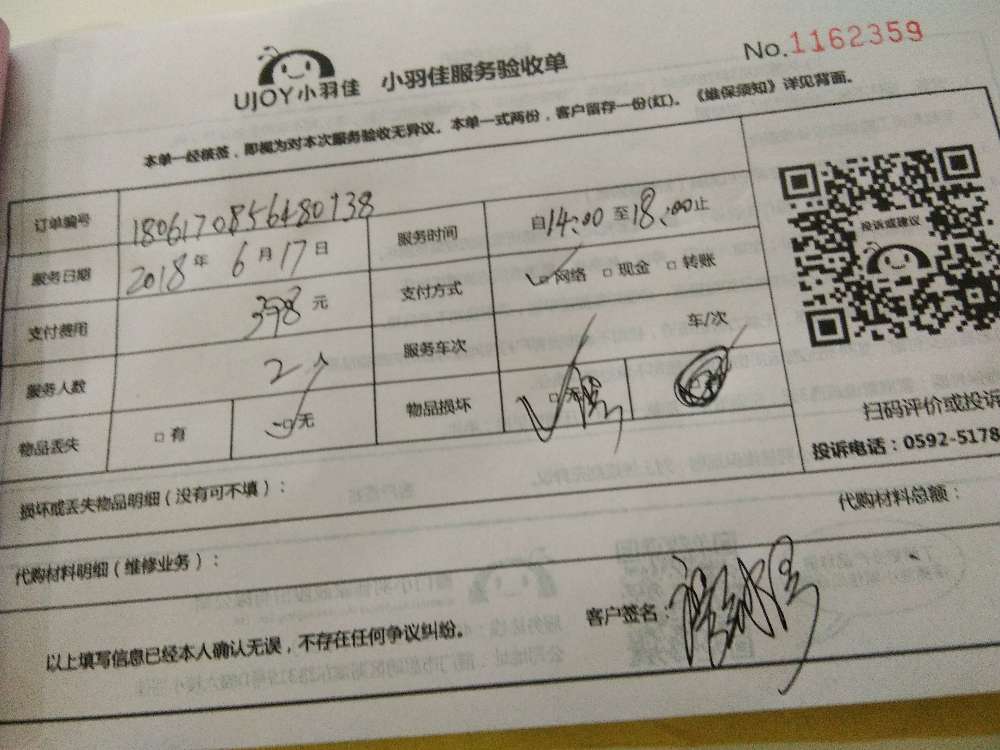 UJOY小羽佳 小羽佳服务验收单 No.1162359
本单一经核签，即视为对本次服务验收无异议。本单一式两份，客户留存一份(红)。《维保须知》详见背面。
订单编号 1806170856480738 服务时间 自14:00至18:00止
服务日期 2018年6月17日 支付方式 □网络 □现金 □转账
支付费用 398元 服务车次 车/次
服务人数 2个
物品丢失 □有 □无 物品损坏 □无
投诉或建议
扫码评价或投诉
投诉电话：0592-5178
损坏或丢失物品明细（没有可不填）：
代购材料明细（维修业务）： 代购材料总额：
以上填写信息已经本人确认无误，不存在任何争议纠纷。 客户签名：